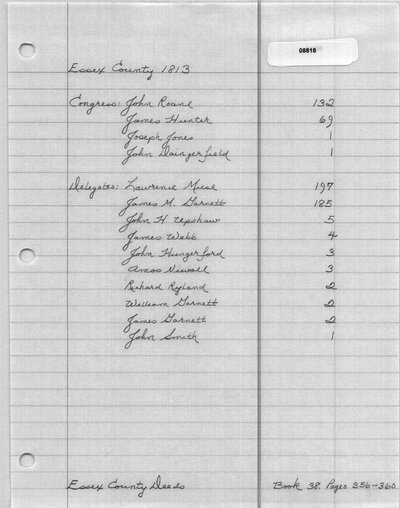 08818
Essex County 1813
Congress: John Roane 132
James Hunter 69
Joseph Jones 1
John Daingerfield 1
Delegates: Lawrence Muse 197
James M. Garnett 185
John H Upshaw 5
James Webb 4
John Hungerford 3
Amos Niwall 3
Richard Ryland 2
William Garnett 2
James Garnett 2
John Smith 1
Essex County Deeds Book 38, Pages 356-360